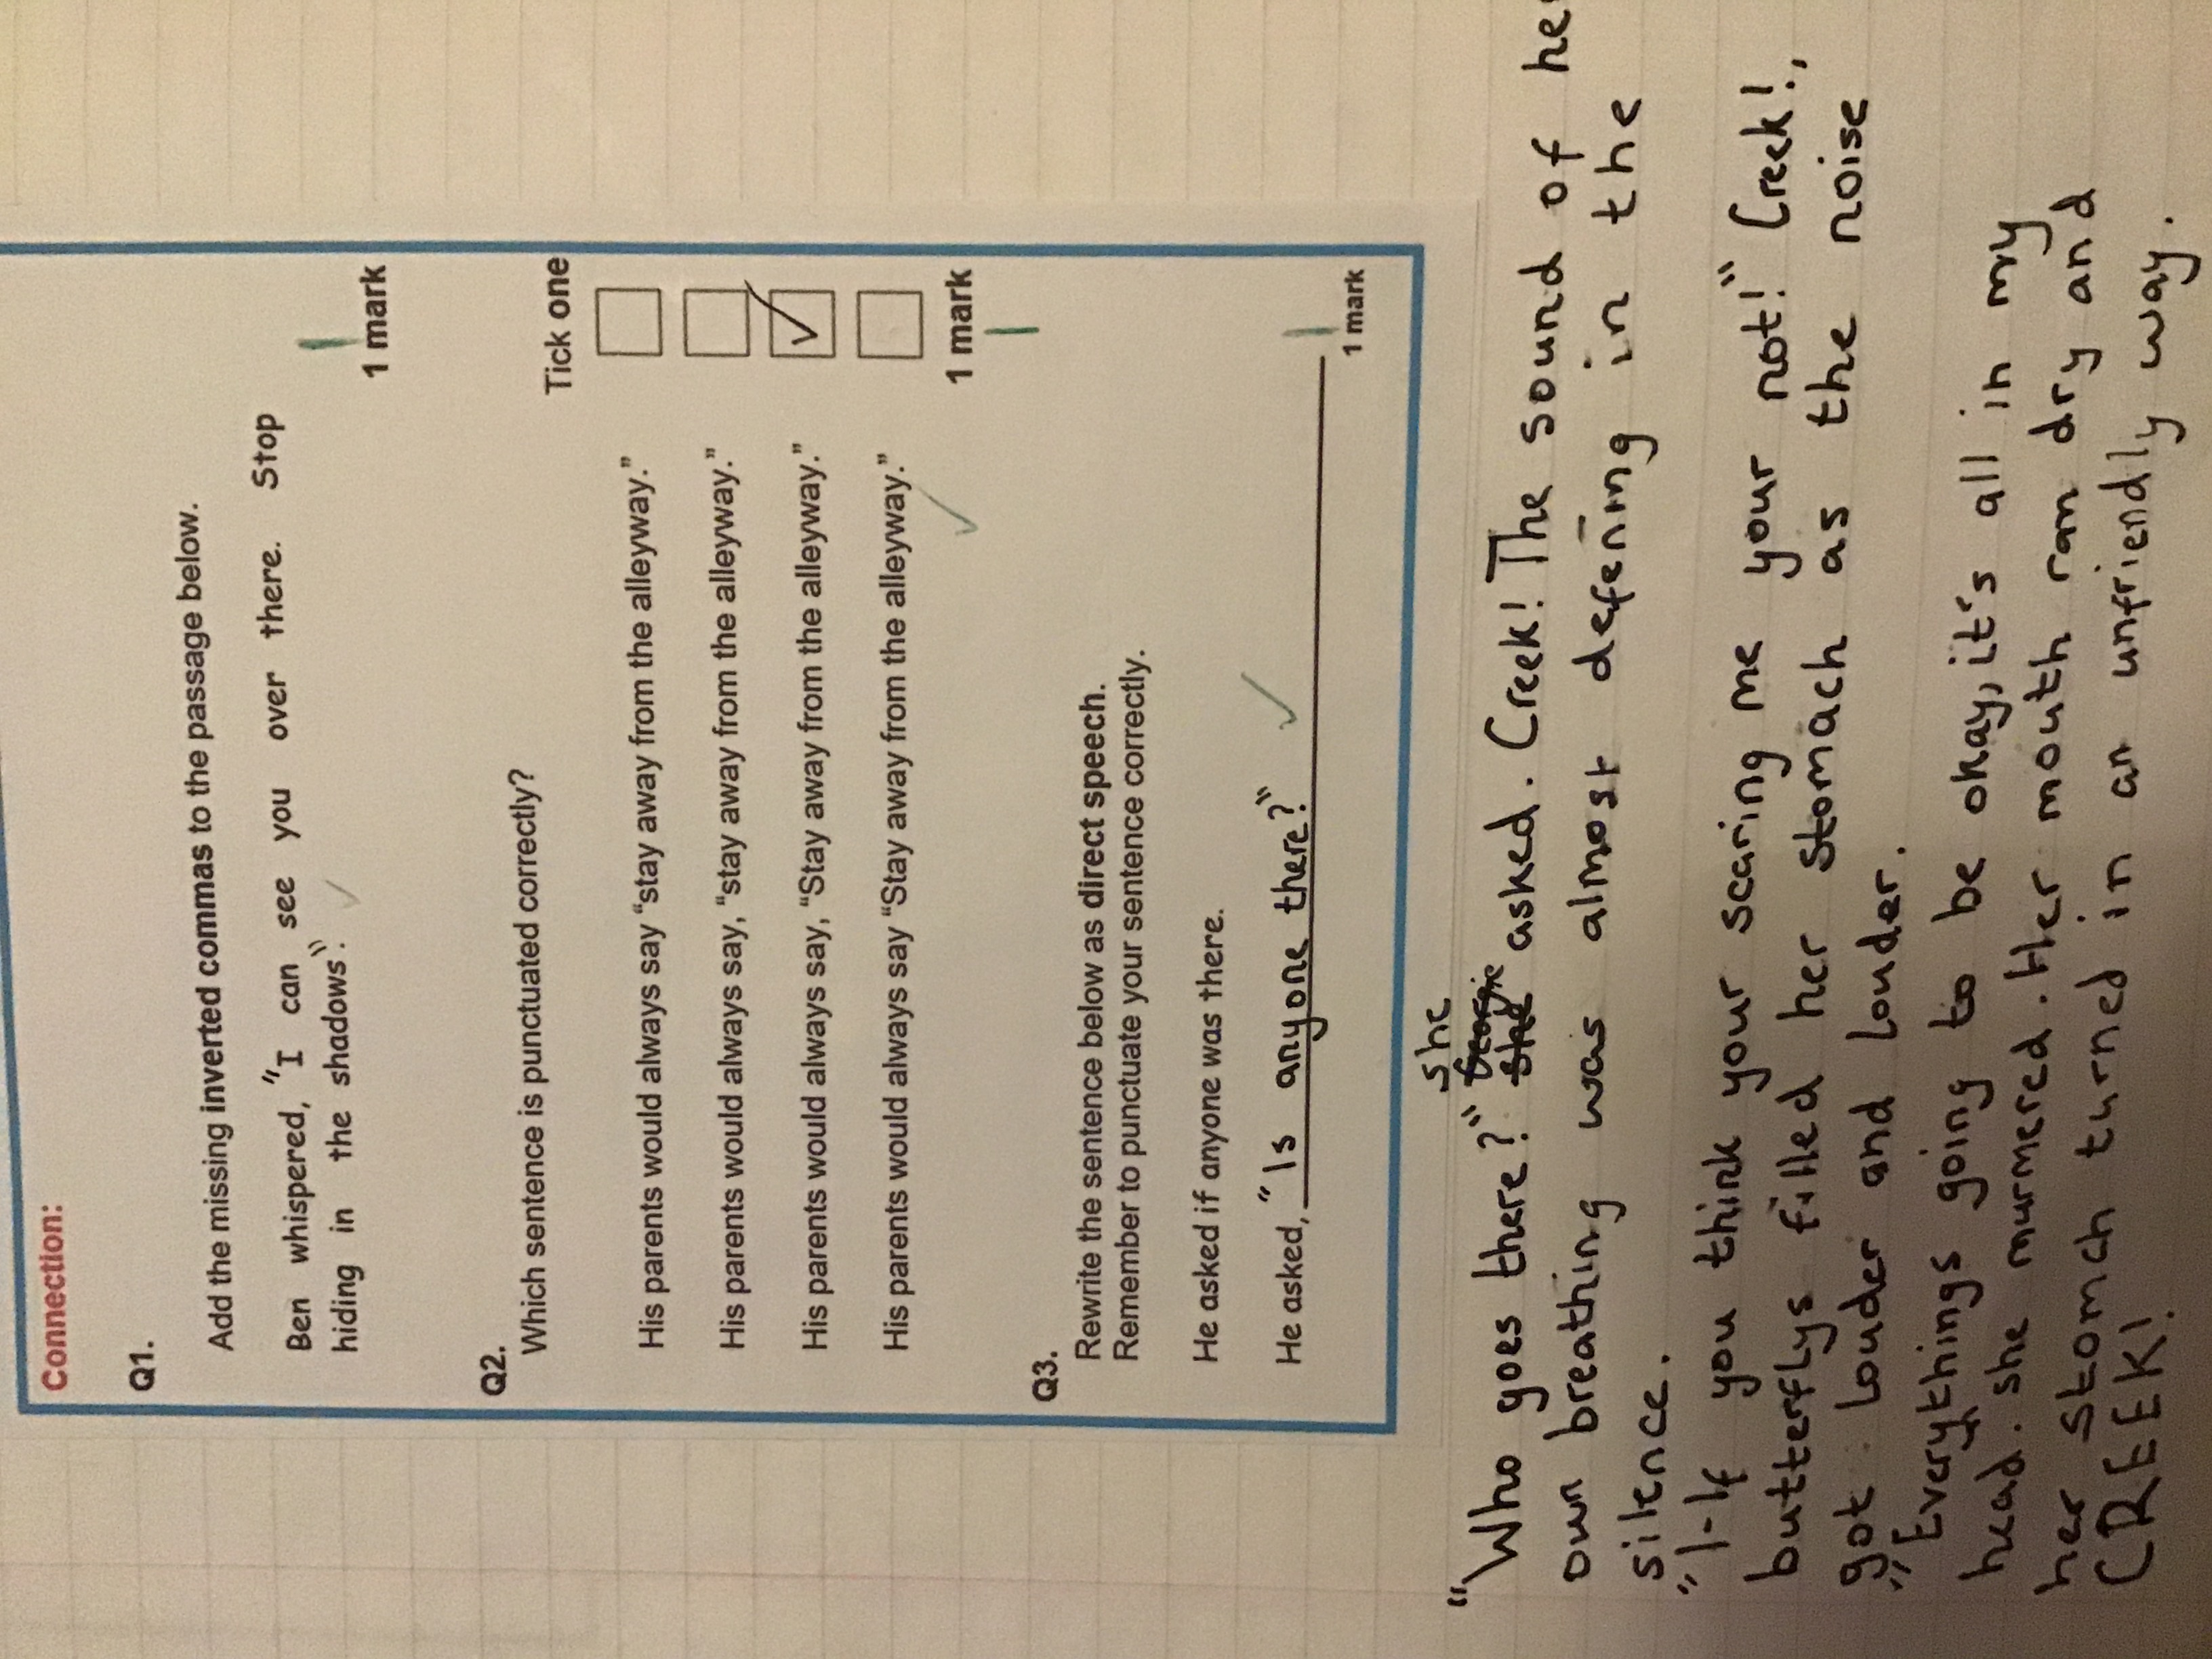 Connection:
Q1.
Add the missing inverted commas to the passage below.
Ben whispered, "I can see you over there. Stop
hiding in the shadows".
1
1 mark
Q2.
Which sentence is punctuated correctly?
Tick one
His parents would always say “stay away from the alleyway.”
His parents would always say, “stay away from the alleyway.”
His parents would always say, “Stay away from the alleyway.”
His parents would always say “Stay away from the alleyway.”
1 mark
1
Q3.
Rewrite the sentence below as direct speech.
Remember to punctuate your sentence correctly.
He asked if anyone was there.
He asked, "Is anyone there?"
1
1 mark
"Who goes there?" she asked. Creek! The sound of her
own breathing was almost defening in the
silence.
"I-If you think your scaring me your not!" Creek!,
butterflys filled her stomach as the noise
got louder and louder.
"Everythings going to be okay, it's all in my
head. she murmered. Her mouth ran dry and
her stomch turned in an unfriendly way.
CREEK!